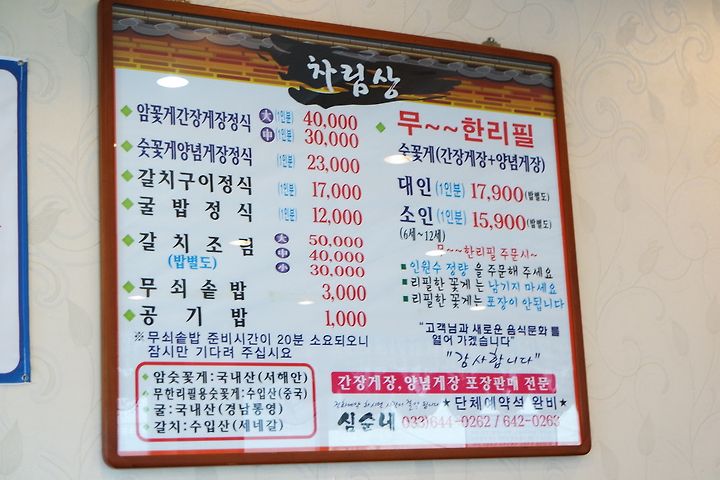 차림상
암꽃게간장게장정식 大 (1인분) 40,000
中 (1인분) 30,000
숫꽃게양념게장정식 (1인분) 23,000
갈치구이정식 (1인분) 17,000
굴밥정식 (1인분) 12,000
갈치조림 大 50,000
(밥별도) 中 40,000
小 30,000
무쇠솥밥 3,000
공기밥 1,000
※무쇠솥밥 준비시간이 20분 소요되오니
잠시만 기다려 주십시요
암숫꽃게:국내산(서해안)
무한리필용숫꽃게:수입산(중국)
굴:국내산(경남통영)
갈치:수입산(세네갈)
무~~한리필
숫꽃게(간장게장+양념게장)
대인(1인분) 17,900(밥별도)
소인(1인분) 15,900(밥별도)
(6세~12세)
무~~한리필 주문시~
인원수 정량을 주문해 주세요
리필한 꽃게는 남기지 마세요
리필한 꽃게는 포장이 안됩니다
"고객님과 새로운 음식문화를
열어 가겠습니다"
"감사합니다"
간장게장, 양념게장 포장판매 전문
★단체예약석 완비★
심순네 033)644-0262 / 642-0263